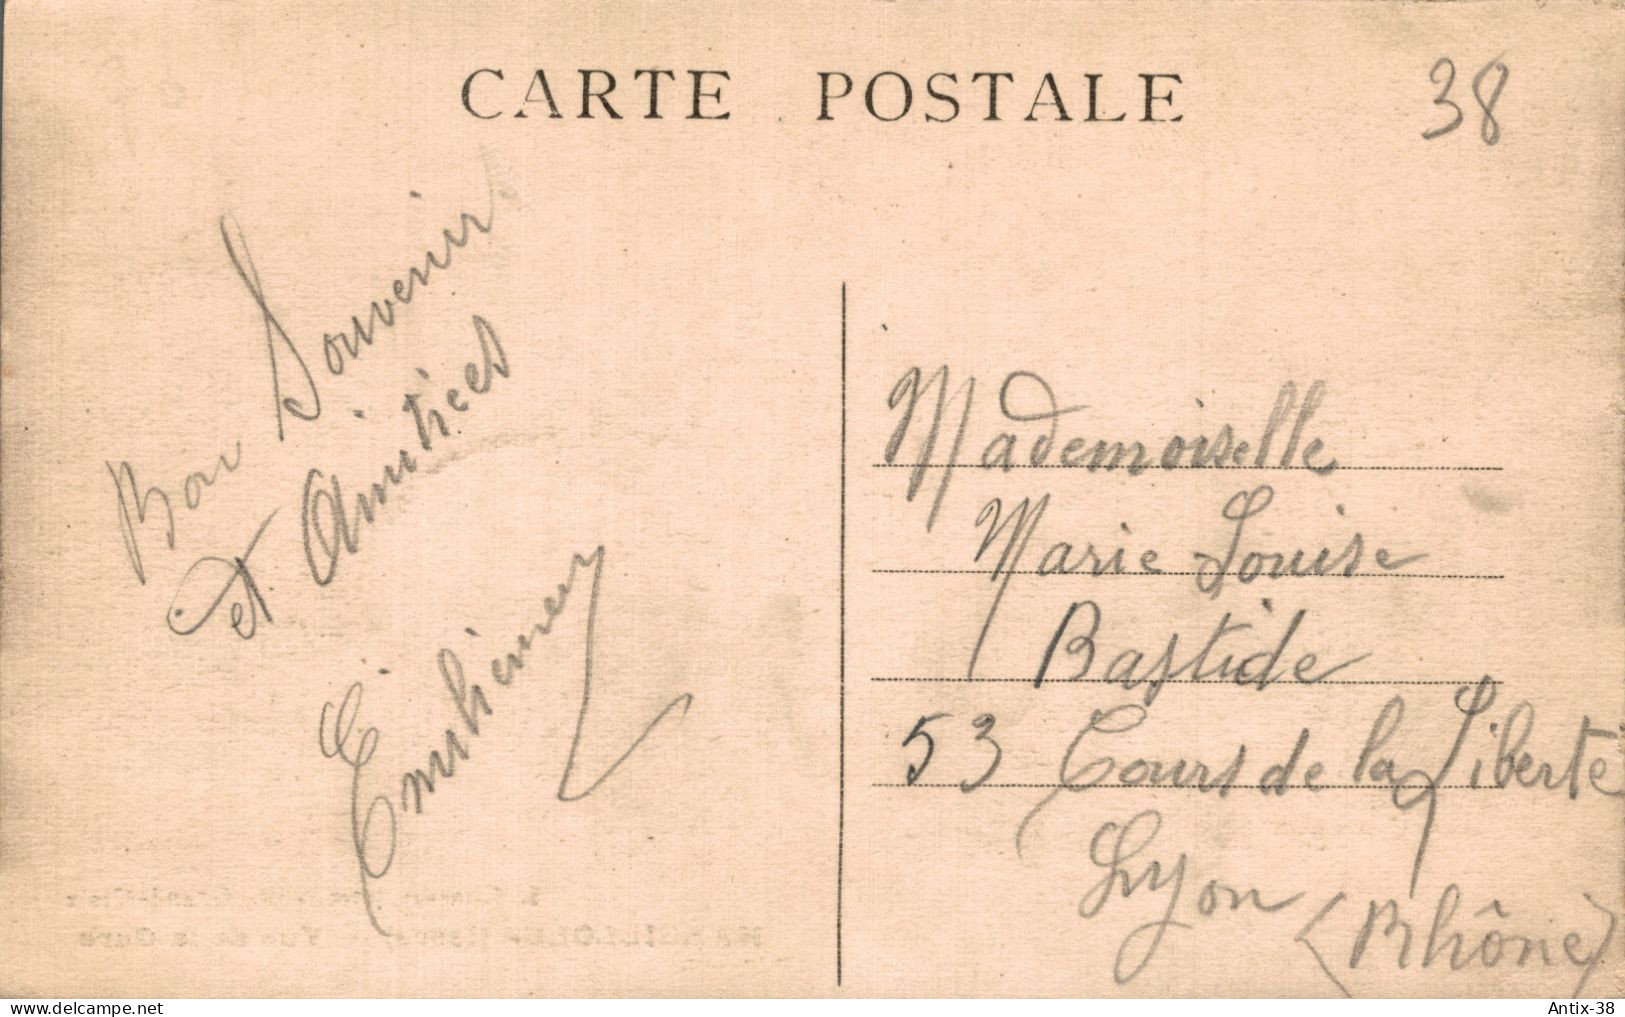 CARTE POSTALE
38
Bon Souvenir
et Amitiées
Mademoiselle
Marie Louise
Bastide
53 Cours de la Liberté
Lyon
(Rhône)
www.delcampe.net
Antix-38